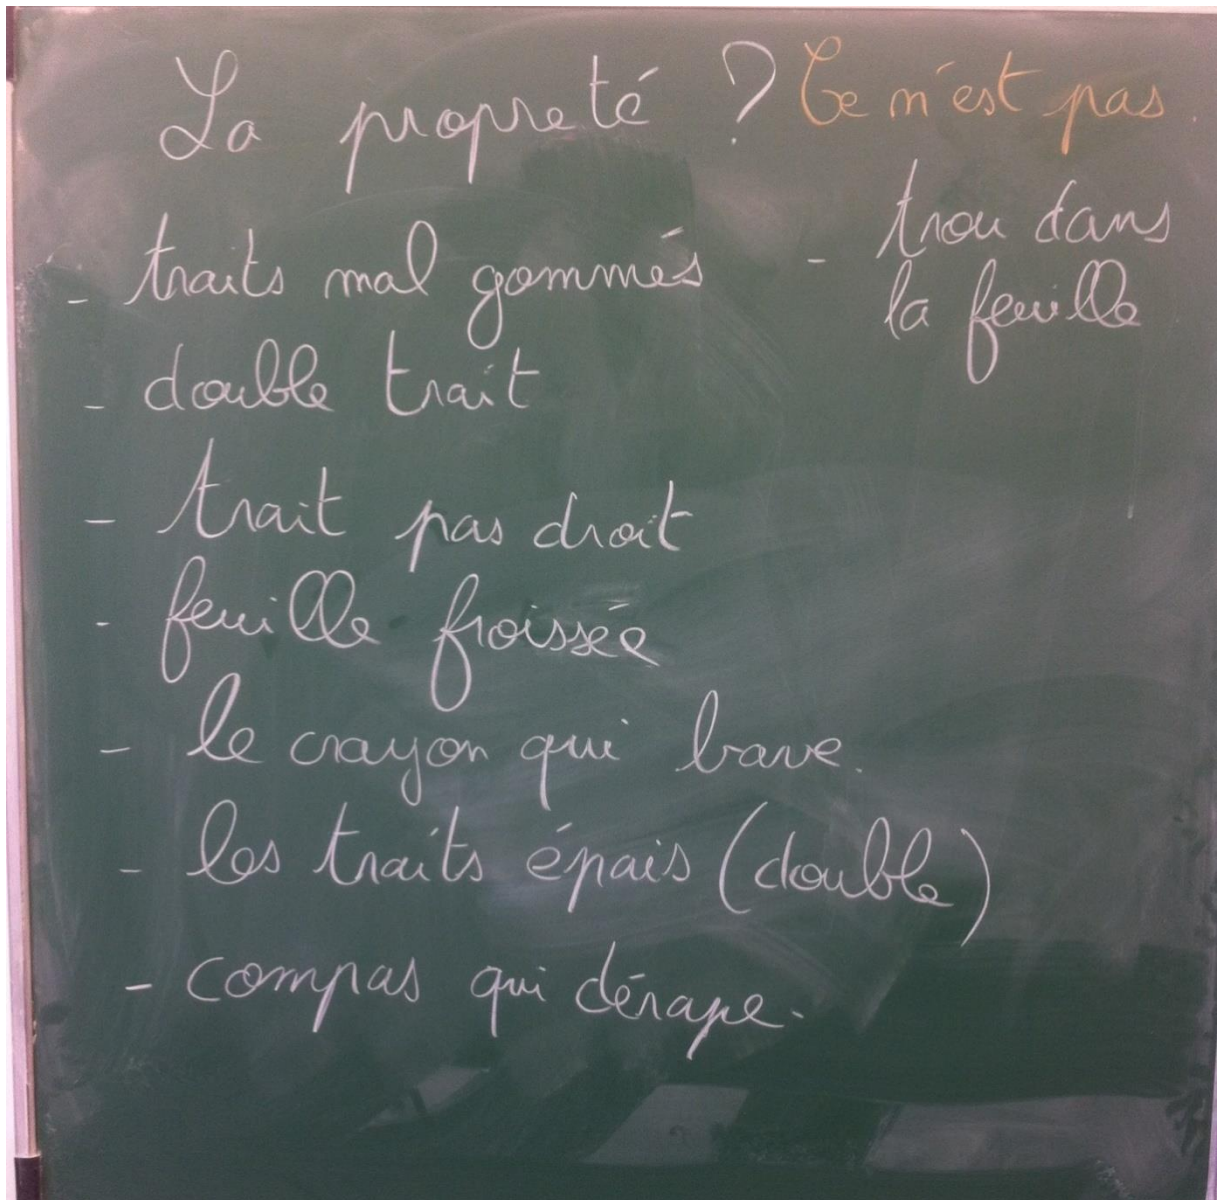 La propreté ? Ce n'est pas.
- traits mal gommés
- double trait
- trait pas droit
- feuille froissée
- le crayon qui bave.
- les traits épais (double)
- compas qui dérape.
- trou dans
la feuille